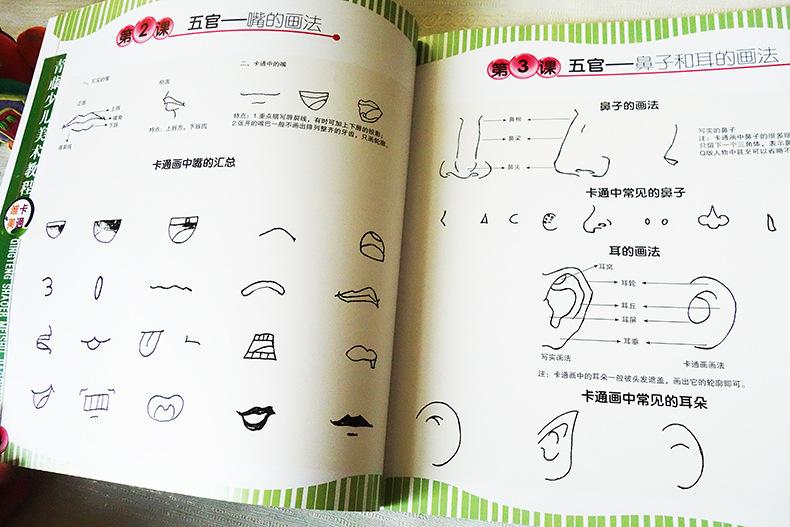 第2课 五官——嘴的画法
一、写实的嘴
正面
侧面
上唇
嘴角
下唇
唇裂线
特点：上唇方，下唇圆
二、卡通中的嘴
特点：1.重点描写唇裂线，有时可加上下唇的投影。
2.张开的嘴巴一般不画出排列整齐的牙齿，只画轮廓。
卡通画中嘴的汇总
青藤少儿美术教程
卡通
QINGTENG SHAOER MEISHU
第3课 五官——鼻子和耳的画法
鼻子的画法
鼻根
鼻梁
鼻头
写实的鼻子
注：卡通画中鼻子的很多细
只留下一个三角体，表示鼻
Q版人物中甚至可以省略不
卡通中常见的鼻子
耳的画法
耳窝
耳轮
耳丘
耳屏
耳垂
写实画法
卡通画画法
注：卡通画中的耳朵一般被头发遮盖，画出它的轮廓即可。
卡通画中常见的耳朵